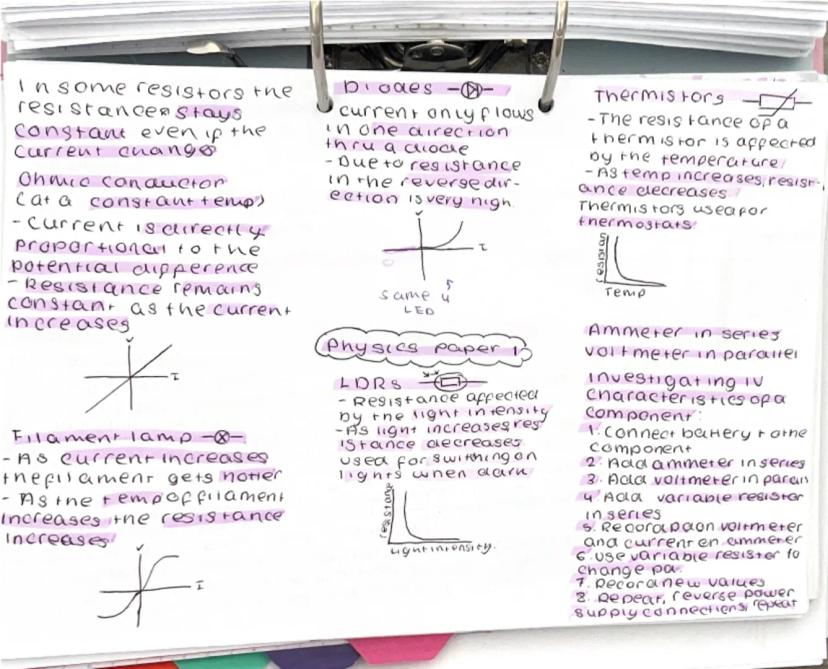 In some resistors the
resistance stays
constant even if the
current changes
Ohmic conductor
(at a constant temp)
- Current is directly
proportional to the
potential difference
- Resistance remains
constant as the current
increases
V
I
Filament lamp
- As current increases
the filament gets hotter
- As the temp of filament
increases the resistance
increases
V
I
Diodes
current only flows
in one direction
thru a diode
- Due to resistance
in the reverse dir-
ection is very high
V
I
same 4
LED
Physics paper 1
LDRs
- Resistance affected
by the light intensity
- As light increases res
istance decreases
used for switching on
lights when dark
resistance
Light intensity.
Thermistors
- The resistance of a
thermistor is affected
by the temperature
- As temp increases, resist-
ance decreases
Thermistors used for
thermostats
Temp
Ammeter in series
voltmeter in parallel
Investigating IV
characteristics of a
component:
1. Connect battery to the
component
2. Add ammeter in series
3. Add voltmeter in
4. Add variable resistor
in series
5. Record pd on voltmeter
and current on ammeter
6. use variable resister to
change pd.
7. Record new values
8. Repeat, reverse power
supply connections, repeat